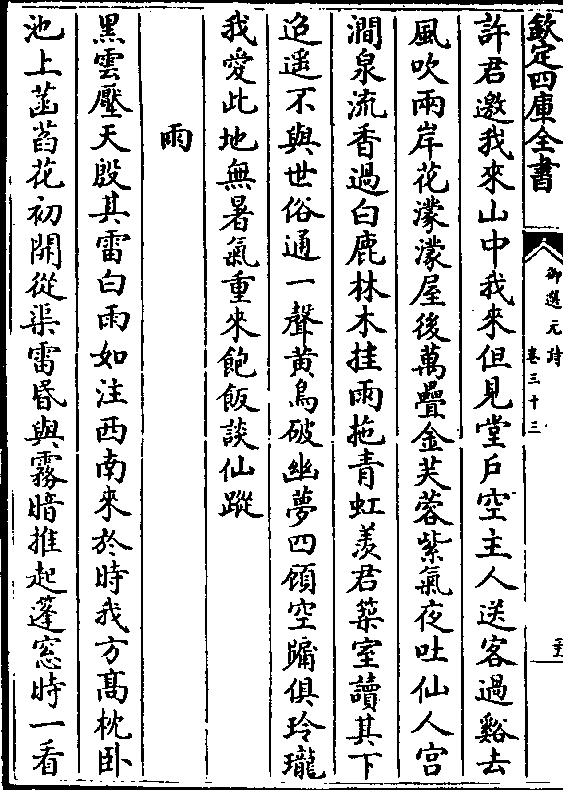 欽定四庫全書
御選元詩
卷三十三
許君邀我來山中我來但見堂戶空主人送客過谿去
風吹兩岸花濛濛屋後萬疊金芙蓉紫氣夜吐仙人宮
澗泉流香過白鹿林木挂雨拖青虹羨君築室讀其下
迢遥不與世俗通一聲黄鳥破幽夢四顧空牖俱玲瓏
我愛此地無暑氣重來飽飯談仙蹤
雨
黑雲壓天殷其雷白雨如注西南來於時我方髙枕卧
池上菡萏花初開從渠雷昏與霧暗推起蓬窓時一看